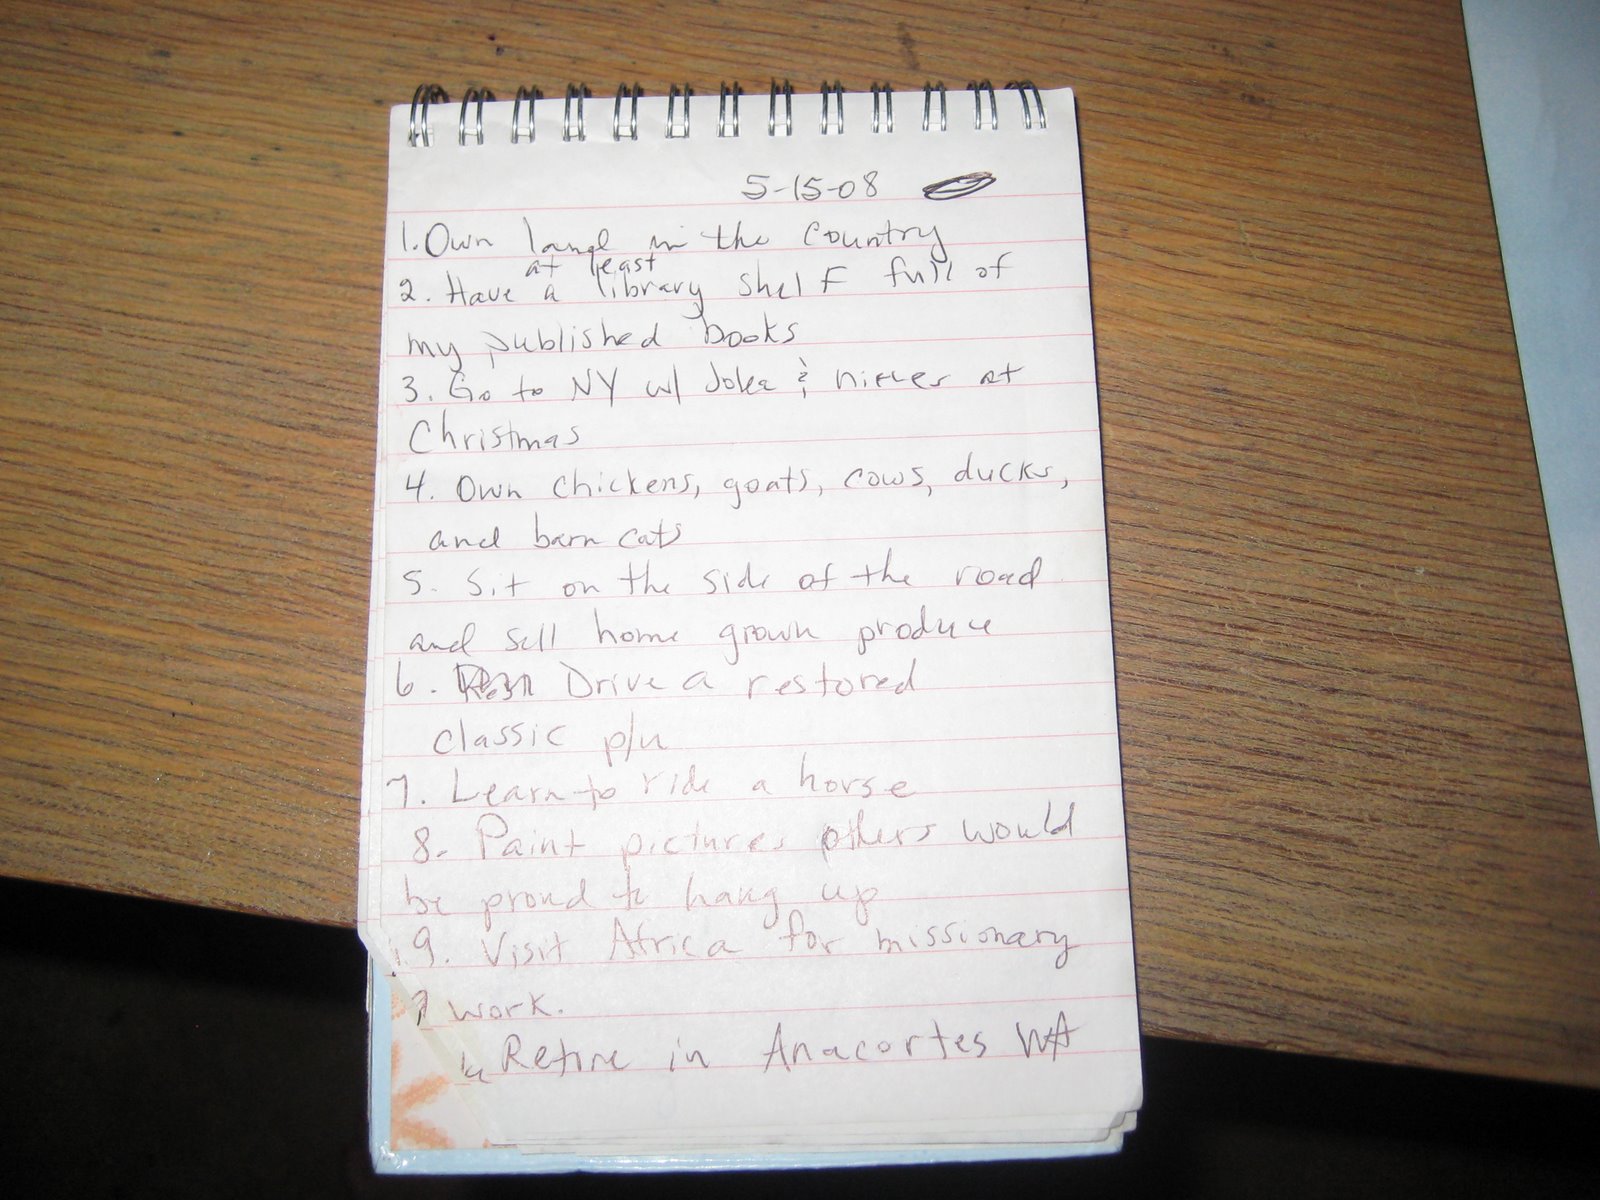 5-15-08
1. Own land in the country
at least
2. Have a library shelf full of
my published books
3. Go to NY w/ & nieces at
Christmas
4. Own chickens, goats, cows, ducks,
and barn cats
5. Sit on the side of the road
and sell home grown produce
6. Drive a restored
classic p/u
7. Learn to ride a horse
8. Paint pictures others would
be proud to hang up
9. Visit Africa for missionary
work.
Retire in Anacortes WA